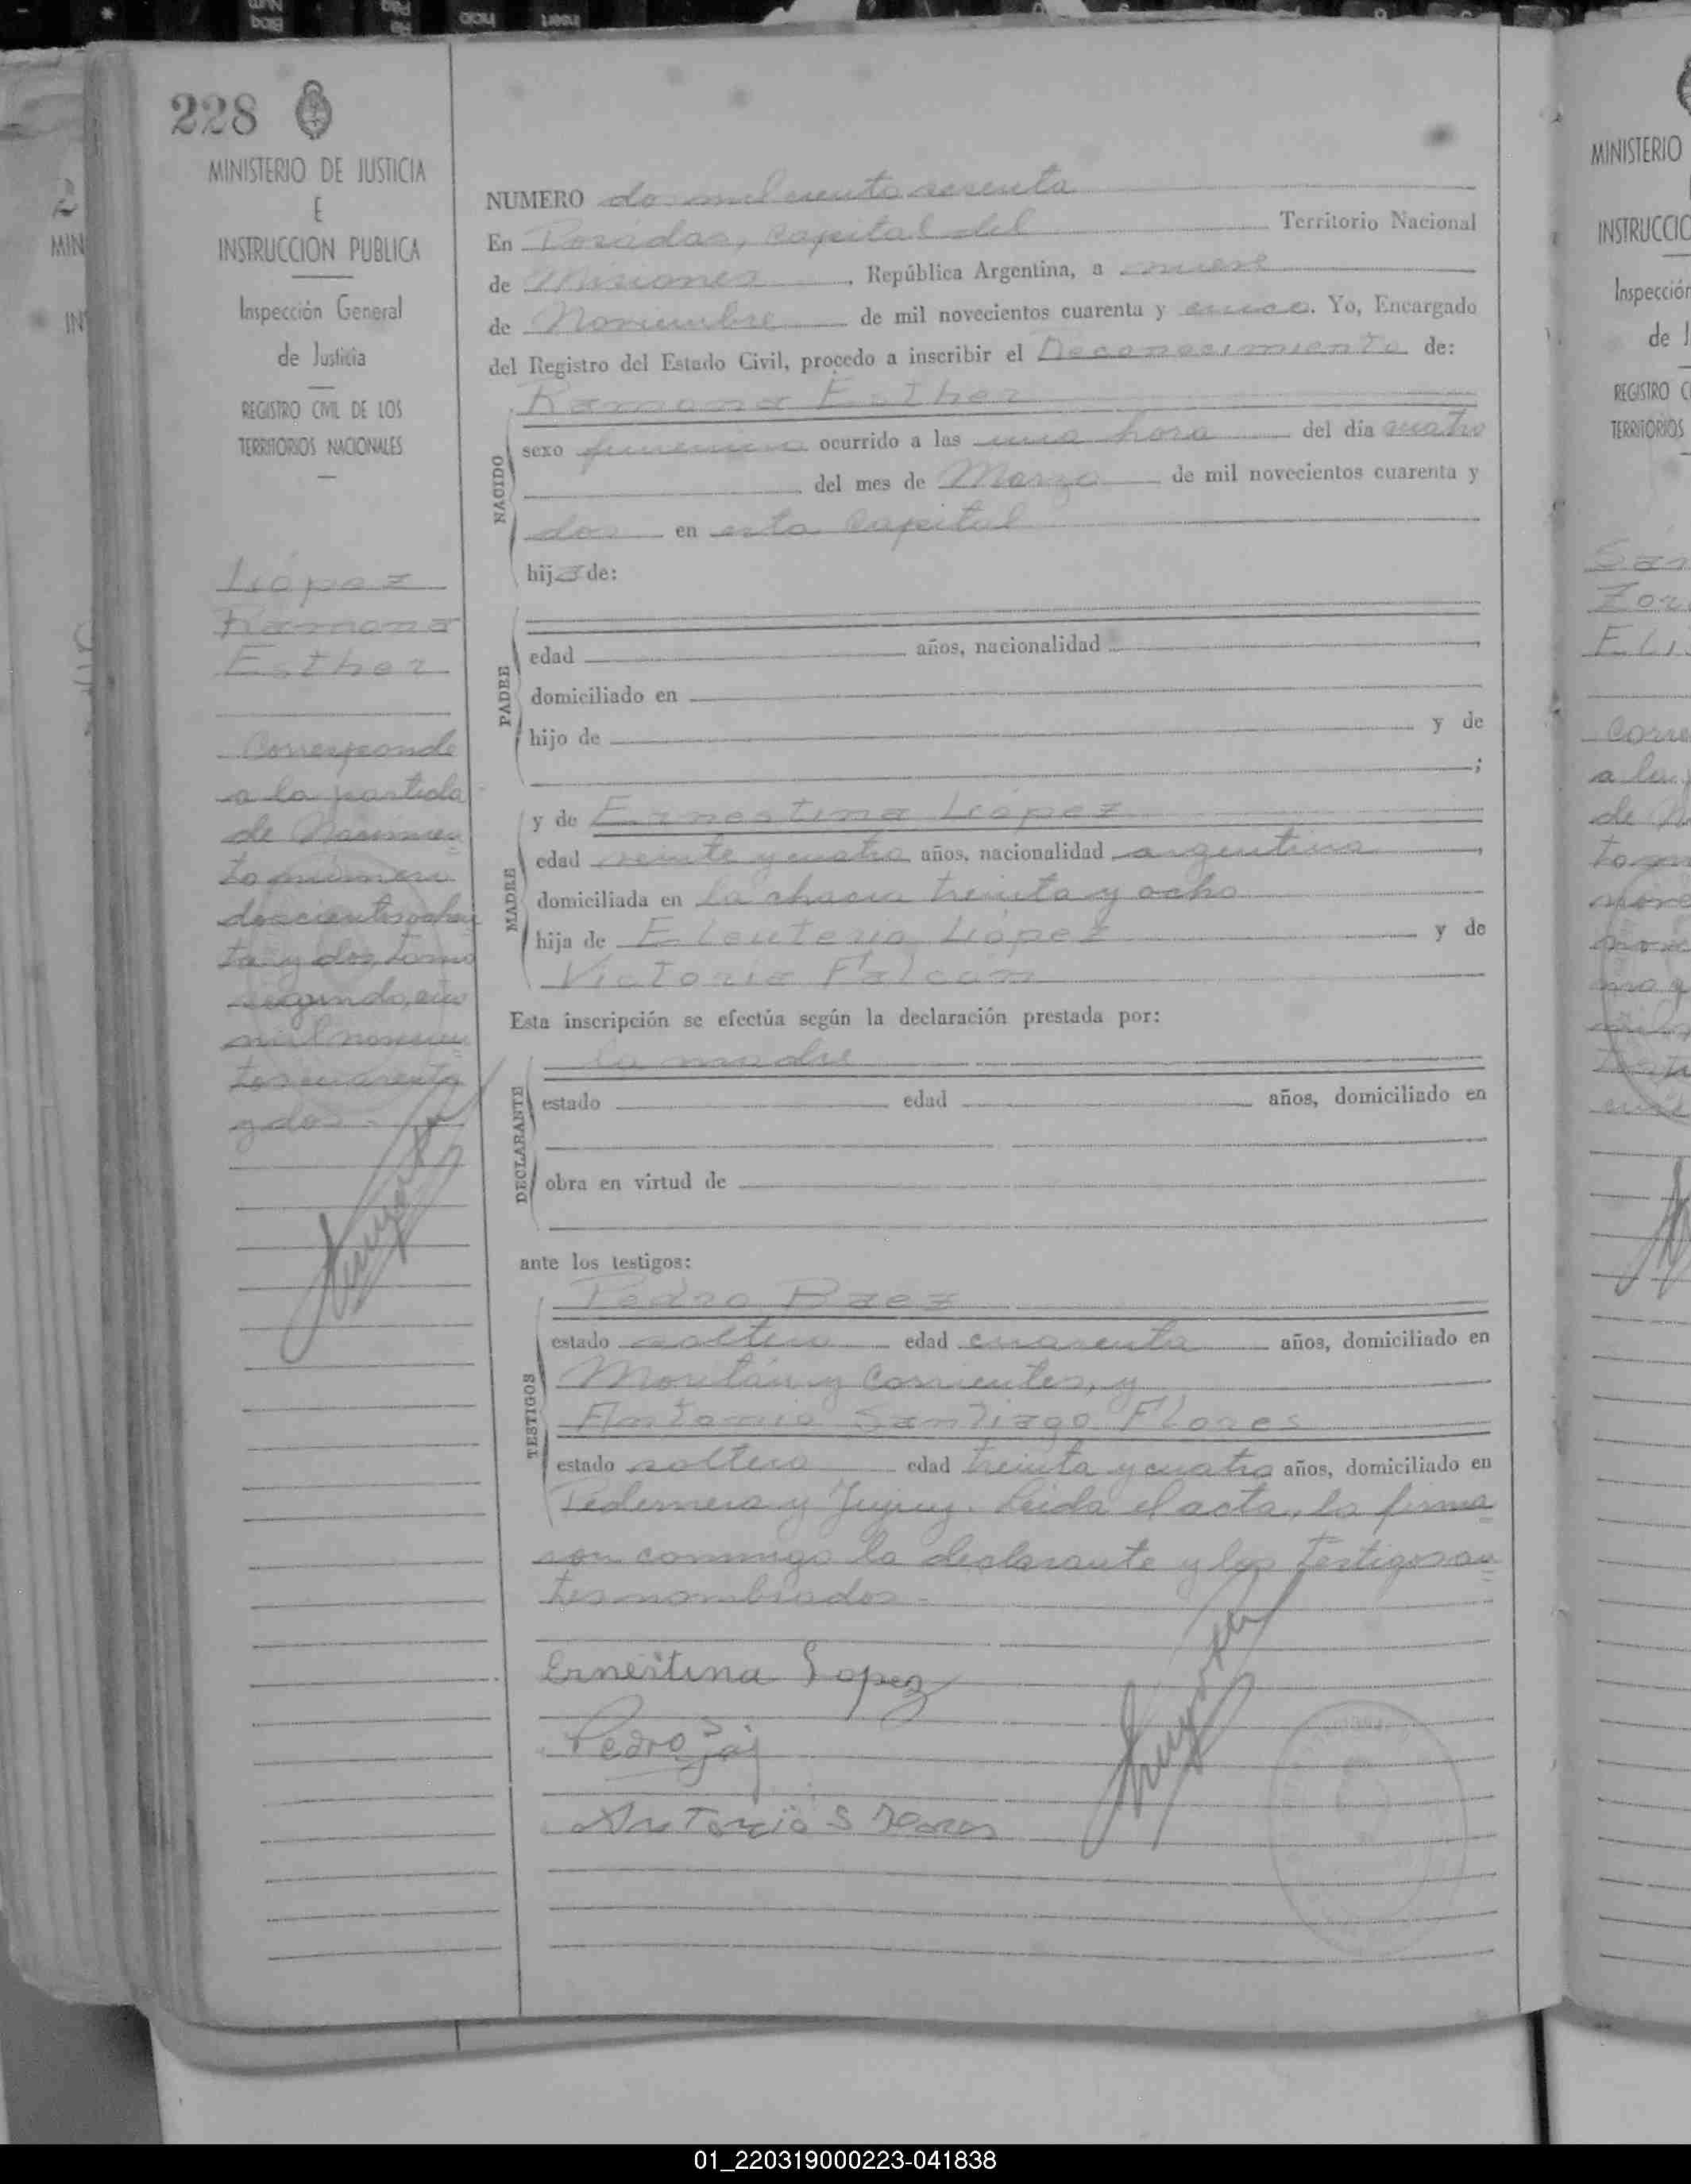 228
MINISTERIO DE JUSTICIA
E
INSTRUCCION PUBLICA
Inspección General
de Justicia
REGISTRO CIVIL DE LOS
TERRITORIOS NACIONALES
López
Ramona
Esther
Corresponde
a la partida
de Nacimien
to número
doscientos ochen
ta y dos, tomo
segundo, año
mil novecien
tos cuarenta
y dos.-
NUMERO dos mil ciento sesenta
En Posadas, Capital del Territorio Nacional
de Misiones, República Argentina, a nueve
de Noviembre de mil novecientos cuarenta y cinco. Yo, Encargado
del Registro del Estado Civil, procedo a inscribir el Reconocimiento de:
Ramona Esther
NACIDO
sexo femenino ocurrido a las una hora del día cuatro
del mes de Marzo de mil novecientos cuarenta y
dos en esta Capital
hija de:
PADRE
edad años, nacionalidad ,
domiciliado en
hijo de y de
;
MADRE
y de Ernestina López
edad veinte y cuatro años, nacionalidad argentina,
domiciliada en la chacra treinta y ocho
hija de Eleuterio López y de
Victoria Falcón
Esta inscripción se efectúa según la declaración prestada por:
la madre
DECLARANTE
estado edad años, domiciliado en
obra en virtud de
ante los testigos:
TESTIGOS
Pedro Baez
estado soltero edad cuarenta años, domiciliado en
y Corrientes, y
Antonio Santiago Flores
estado soltero edad treinta y cuatro años, domiciliado en
Pedernera y Jujuy. Leida el acta, la firma
con conmigo la declarante y los testigos an
tes nombrados.-
Ernestina Lopez
Pedro
Antonio S Flores
MINISTERIO
INSTRUCCIO
Inspección
de J
REGISTRO C
TERRITORIOS
01_220319000223-041838